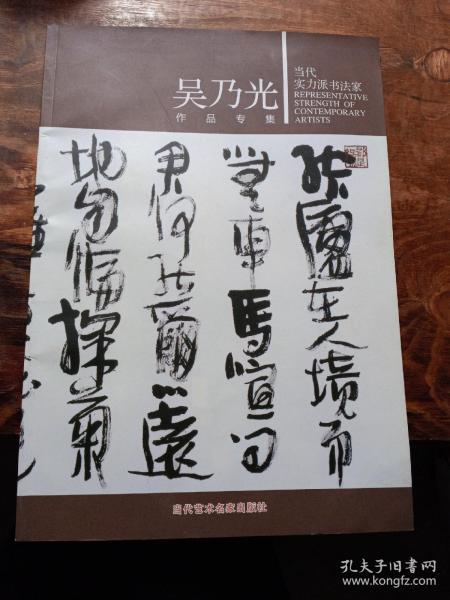 吴乃光
作品专集
当代
实力派书法家
REPRESENTATIVE
STRENGTH OF
CONTEMPORARY
ARTISTS
結廬在人境而
無車馬喧问
君何能爾心遠
地自偏採菊
当代艺术名家出版社
孔夫子旧书网
www.kongfz.com